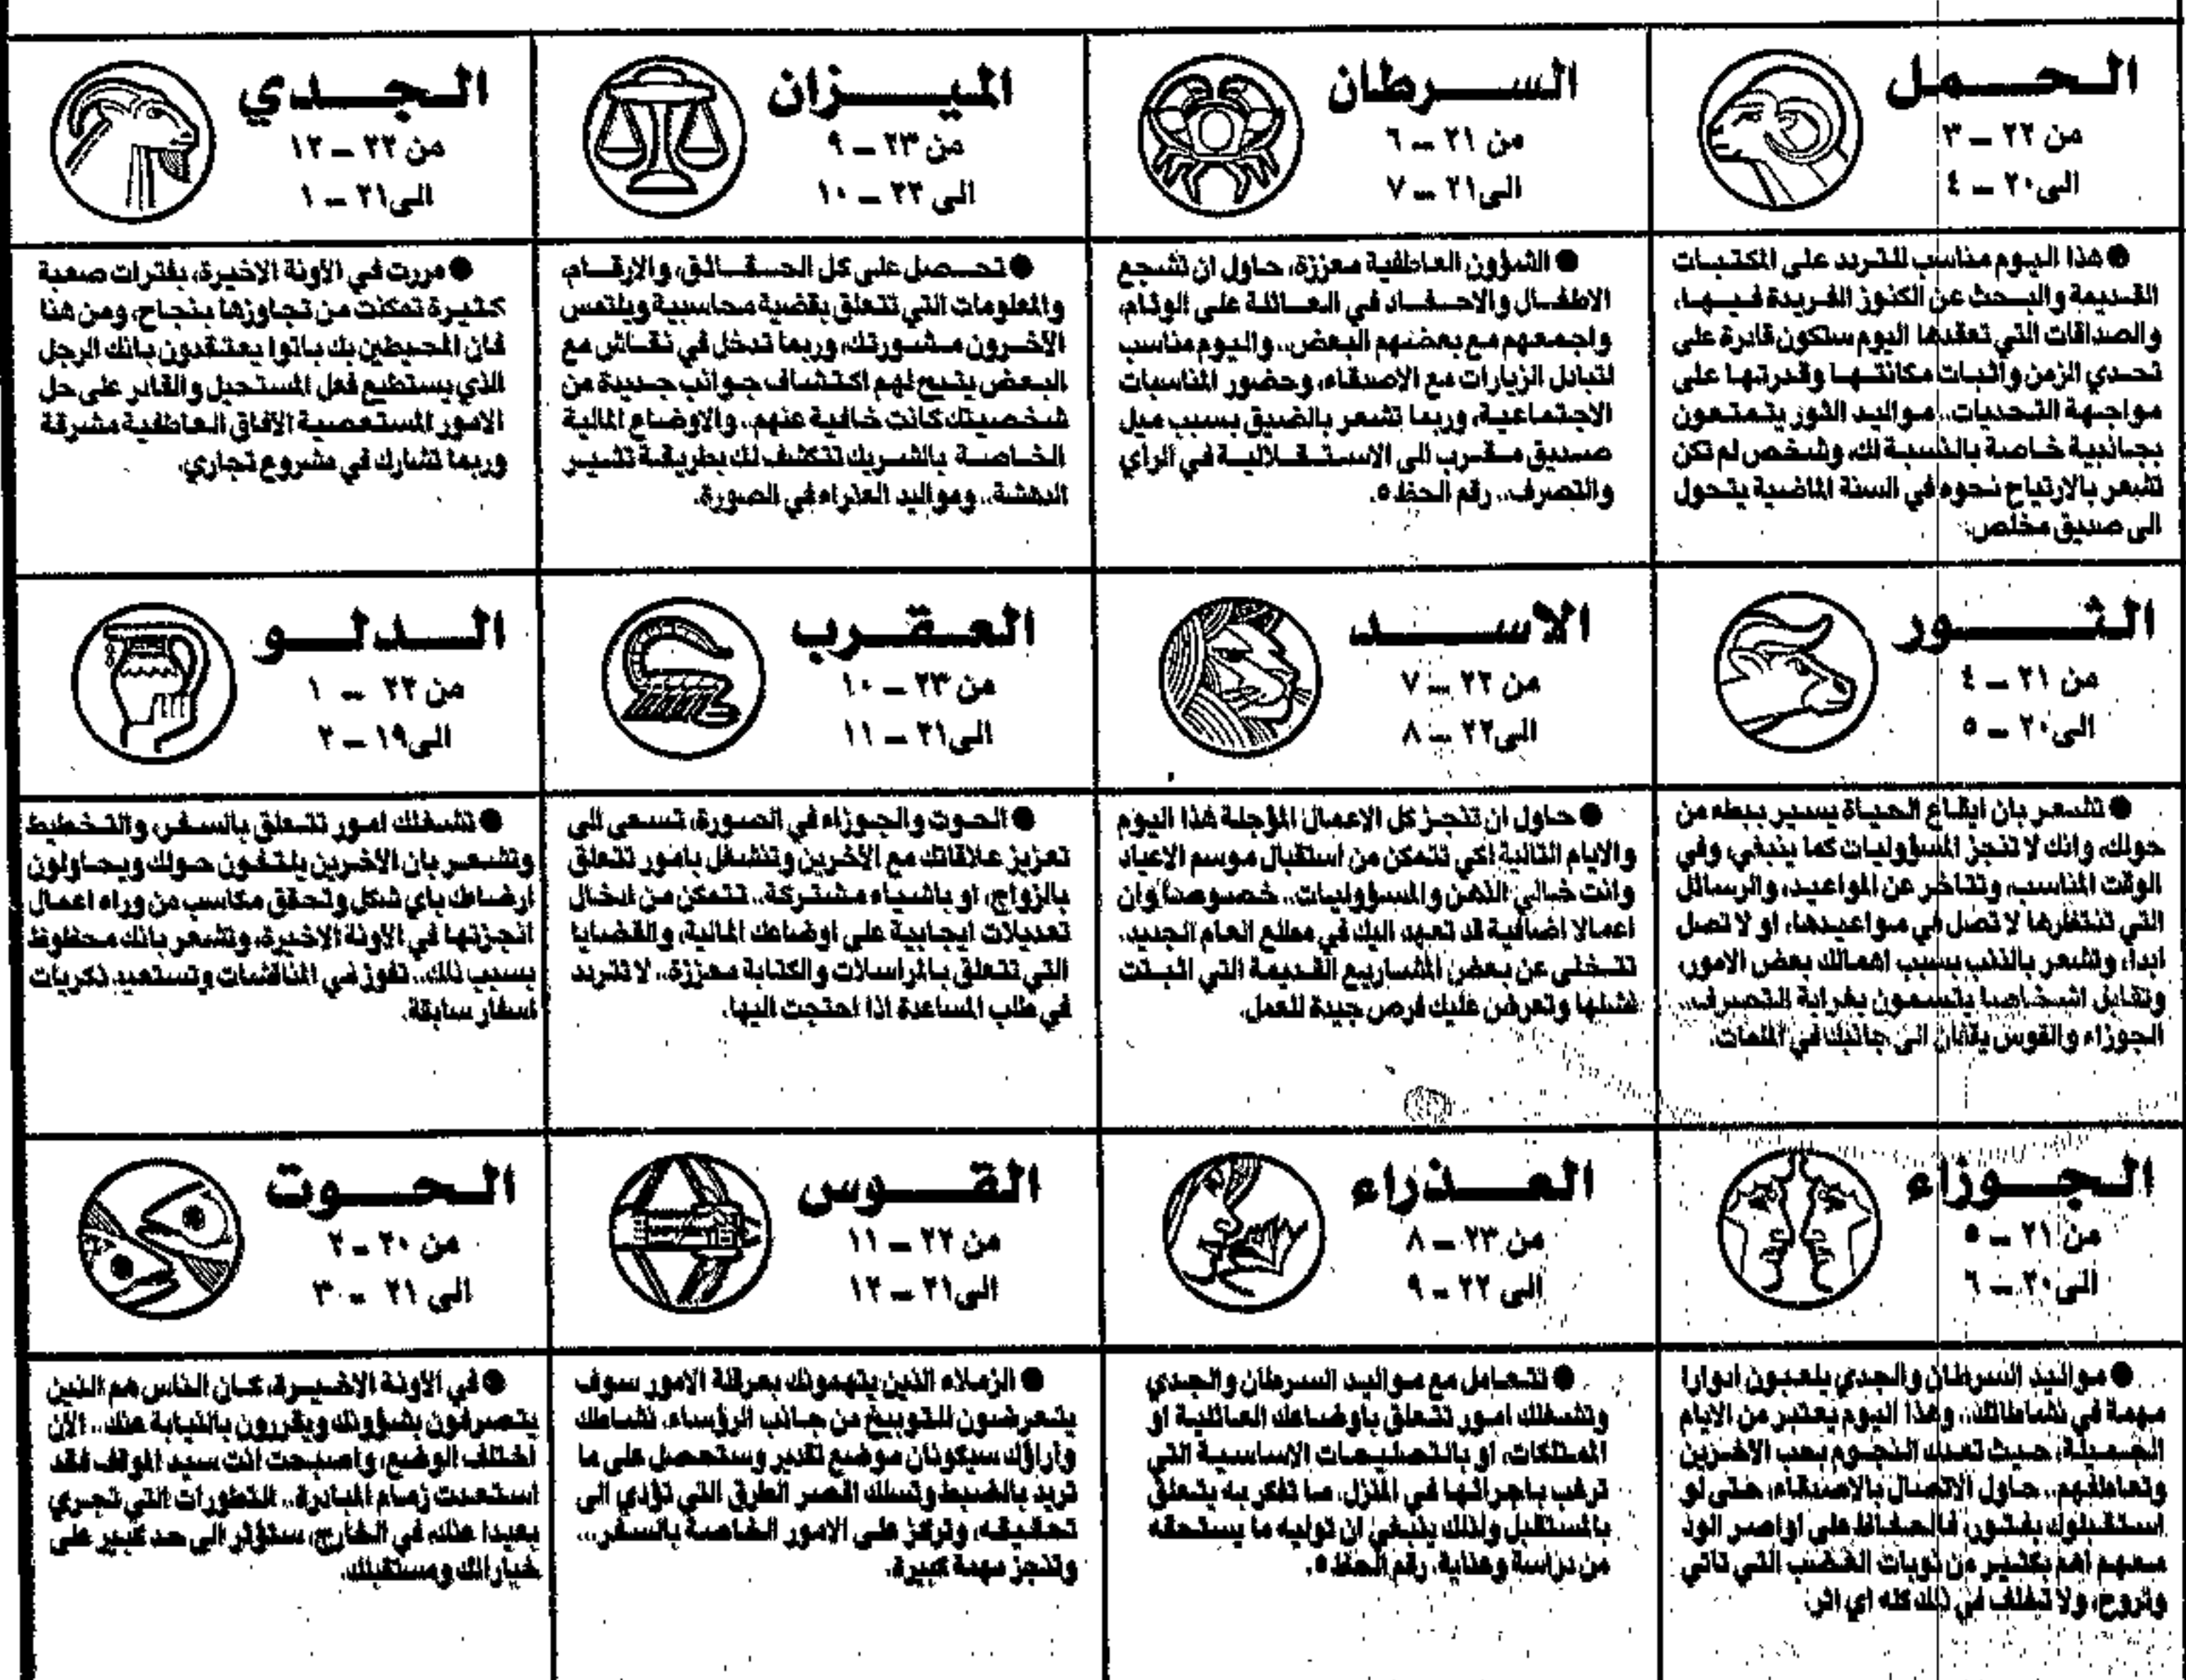 الحمل
من ٢٢ – ٣
الى ٢٠ – ٤
● هذا اليوم مناسب للتريد على المكتبات
القديمة والبحث عن الكنوز الفريدة فيها،
والصداقات التي تعقدها اليوم ستكون قادرة على
تحدي الزمن واثبات مكانتها وقدرتها على
مواجهة التحديات.. مواليد الثور يتمتعون
بجانبية خاصة بالنسبة لك، وشخص لم تكن
تشعر بالارتياح نحوه في السنة الماضية يتحول
الى صديق مخلص.
الثور
من ٢١ – ٤
الى ٢٠ – ٥
● تشعر بان ايقاع الحياة يسير ببطء من
حولك، وانك لا تنجز المسؤوليات كما ينبغي، وفي
الوقت المناسب، وتتاخر عن المواعيد، والرسائل
التي تنتظرها لا تصل في مواعيدها، او لا تصل
ابدا، وتشعر بالذنب بسبب اهمالك بعض الامور،
وتقابل اشخاصا يتسمون بغرابة التصرف..
الجوزاء والقوس يقفان الى جانبك في الملمات.
الجوزاء
من ٢١ – ٥
الى ٢٠ – ٦
● مواليد السرطان والجدي يلعبون ادوارا
مهمة في نشاطاتك.. وهذا اليوم يعتبر من الايام
الجميلة، حيث تمدك النجوم بحب الاخرين
وتعاطفهم.. حاول الاتصال بالاصدقاء، حتى لو
استقبلوك بفتور، فالحفاظ على اواصر الود
معهم اهم بكثير من نوبات الغضب التي تاتي
وتروح، ولا تخلف في ذلك كله اي اثر.
السرطان
من ٢١ – ٦
الى ٢١ – ٧
● الشؤون العاطفية معززة، حاول ان تشجع
الاطفال والاحفاد في العائلة على الوئام،
واجمعهم مع بعضهم البعض.. واليوم مناسب
لتبادل الزيارات مع الاصدقاء، وحضور المناسبات
الاجتماعية، وربما تشعر بالضيق بسبب ميل
صديق مقرب الى الاستقلالية في الراي
والتصرف.. رقم الحظ ٥.
الاسد
من ٢٢ – ٧
الى ٢٢ – ٨
● حاول ان تنجز كل الاعمال المؤجلة هذا اليوم
والايام التالية لكي تتمكن من استقبال موسم الاعياد
وانت خالي الذهن والمسؤوليات.. خصوصا وان
اعمالا اضافية قد تعهد اليك في مطلع العام الجديد.
تتخلى عن بعض المشاريع القديمة التي اثبتت
فشلها وتعرض عليك فرص جيدة للعمل.
العذراء
من ٢٣ – ٨
الى ٢٢ – ٩
● تتعامل مع مواليد السرطان والجدي
وتشغلك امور تتعلق باوضاعك العائلية او
الممتلكات، او بالتصليحات الاساسية التي
ترغب باجرائها في المنزل، ما تفكر به يتعلق
بالمستقبل ولذلك ينبغي ان توليه ما يستحقه
من دراسة وعناية. رقم الحظ ٥.
الميزان
من ٢٣ – ٩
الى ٢٢ – ١٠
● تحصل على كل الحقائق، والارقام،
والمعلومات التي تتعلق بقضية محاسبية ويلتمس
الآخرون مشورتك، وربما تدخل في نقاش مع
البعض يتيح لهم اكتشاف جوانب جديدة من
شخصيتك كانت خافية عنهم.. والاوضاع المالية
الخاصة بالشريك تتكشف لك بطريقة تثير
الدهشة.. ومواليد العذراء في الصورة.
العقرب
من ٢٣ – ١٠
الى ٢١ – ١١
● الحوت والجوزاء في الصورة، تسعى الى
تعزيز علاقاتك مع الآخرين وتنشغل بامور تتعلق
بالزواج، او باشياء مشتركة.. تتمكن من ادخال
تعديلات ايجابية على اوضاعك المالية، والقضايا
التي تتعلق بالمراسلات والكتابة معززة.. لا تتردد
في طلب المساعدة اذا احتجت اليها.
القوس
من ٢٢ – ١١
الى ٢١ – ١٢
● الزملاء الذين يتهمونك بعرقلة الامور سوف
يتعرضون للتوبيخ من جانب الرؤساء. نشاطك
وآراؤك سيكونان موضع تقدير وستحصل على ما
تريد بالضبط وتسلك اقصر الطرق التي تؤدي الى
تحقيقه، وتركز على الامور الخاصة بالسفر..
وتنجز مهمة كبيرة.
الجدي
من ٢٢ – ١٢
الى ٢١ – ١
● مررت في الآونة الاخيرة، بفترات صعبة
كثيرة تمكنت من تجاوزها بنجاح، ومن هنا
فان المحيطين بك باتوا يعتقدون بانك الرجل
الذي يستطيع فعل المستحيل والقادر على حل
الامور المستعصية الآفاق العاطفية مشرقة
وربما تشارك في مشروع تجاري.
الدلو
من ٢٢ – ١
الى ١٩ – ٢
● تشغلك امور تتعلق بالسفر، والتخطيط
وتشعر بان الآخرين يلتفون حولك ويحاولون
ارضاءك باي شكل وتحقق مكاسب من وراء اعمال
انجزتها في الآونة الاخيرة، وتشعر بانك محظوظ
بسبب ذلك.. تفوز في المناقشات وتستعيد ذكريات
اسفار سابقة.
الحوت
من ٢٠ – ٢
الى ٢١ – ٣
● في الآونة الاخيرة، كان الناس هم الذين
يتصرفون بشؤونك ويقررون بالنيابة عنك.. الآن
اختلف الوضع، واصبحت انت سيد الموقف فقد
استعدت زمام المبادرة.. التطورات التي تجري
بعيدا عنك، في الخارج، ستؤثر الى حد كبير على
خياراتك ومستقبلك.